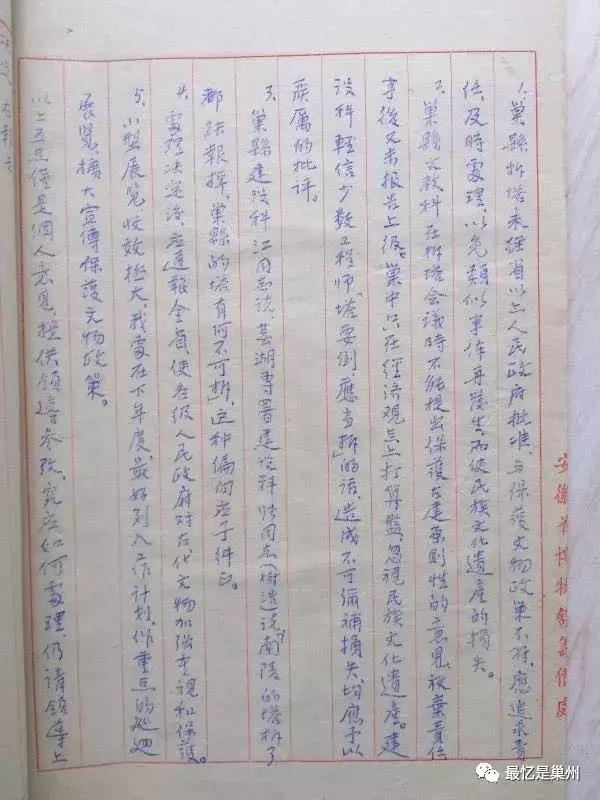 1、巢縣拆塔未經省以上人民政府批准,与保護文物政策不符,應追求責
任,及時處理,以免類似事件再發生而使民族文化遺產的損失。
2、巢縣文教科在拆塔會議時不能提出保護古建原則性的意見,放棄責任
事後又未報告上級。巢中只在經济观点上打算盤,忽視民族文化遺產。建
設科輕信少数工程师「塔要倒應当拆」的话,造成不可彌補損失,均應予以
嚴厲的批评。
3、巢縣建设科江同志说,芜湖專署建设科 同志(樹浩)说「南陵的塔拆了
都 報掉,巢縣的塔有何不可拆」这种偏向应予纠正。
4、處理决定後,应通報全省使各級人民政府对古代文物加強重視和保護。
5、小型展览,收效極大,我處在下年度,最好列入工作计划,作重点的巡迴
展览,擴大宣傳保護文物政策。
以上五点僅是個人意見,提供領導参攷,究应如何處理,仍请領導上
安徽省博物館籌備處
最忆是巢州